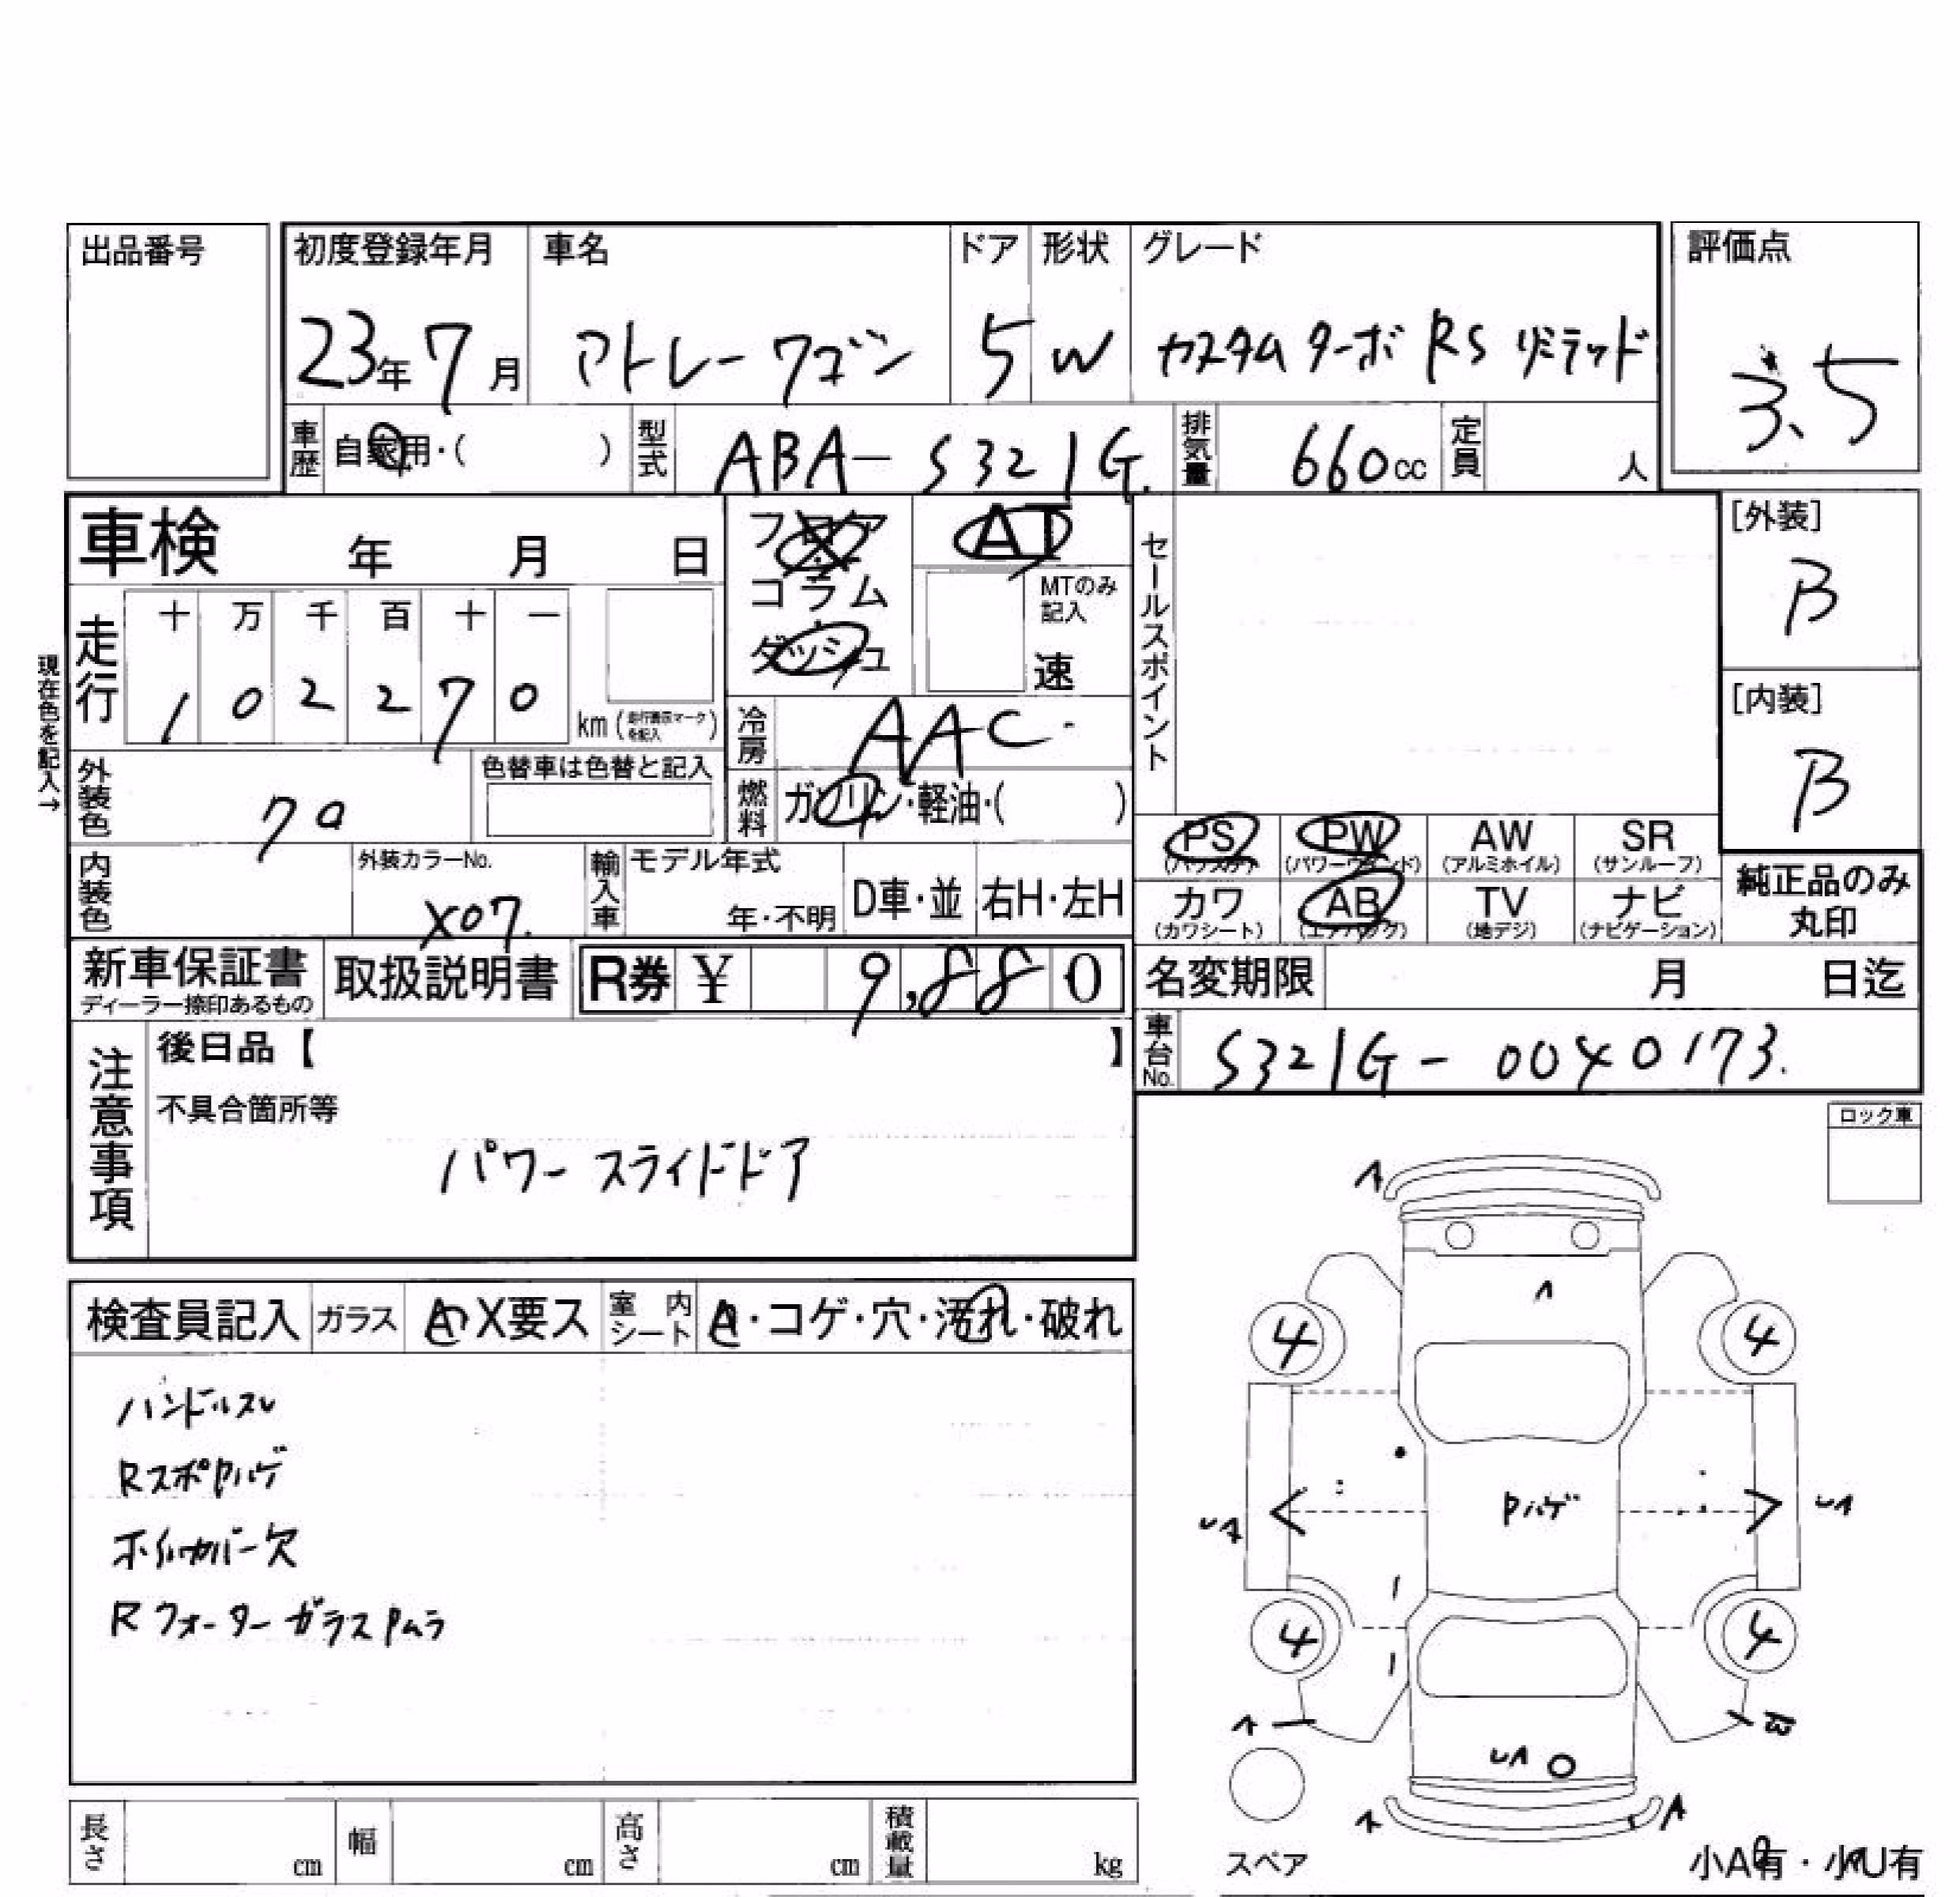 出品番号
初度登録年月 車名 ドア 形状 グレード 評価点
23年7月 アトレーワゴン 5 W カスタムターボRSリミテッド 3.5
車歴 自家用・( ) 型式 ABA-S321G 排気量 660cc 定員 人
車検 年 月 日
フロア コラム ダッシュ
AT
MTのみ記入
速
セールスポイント
[外装]
B
[内装]
B
現在色を記入→
走行 十 万 千 百 十 一
1 0 2 2 7 0 km (走行表示マークを記入)
冷房 AAC
外装色 クロ 色替車は色替と記入
燃料 ガソリン・軽油・( )
PS (パワステ) PW (パワーウィンド) AW (アルミホイル) SR (サンルーフ)
カワ (カワシート) AB (エアバッグ) TV (地デジ) ナビ (ナビゲーション)
純正品のみ丸印
内装色 外装カラーNo. X07 輸入車 モデル年式 年・不明 D車・並 右H・左H
新車保証書 ディーラー捺印あるもの 取扱説明書 R券 ¥ 9,880 名変期限 月 日迄
車台No. S321G-0040173.
注意事項 後日品【 】
不具合箇所等
パワースライドドア
ロック車
検査員記入 ガラス A・X要ス 室内シート A・コゲ・穴・汚れ・破れ
ハンドルスレ
RスポPハゲ
ホイルカバー欠
RクォーターガラスPムラ
A
A
4 4
Pハゲ
UA UA
4 4
A
UA
A A
スペア
小A有・小U有
長さ cm 幅 cm 高さ cm 積載量 kg